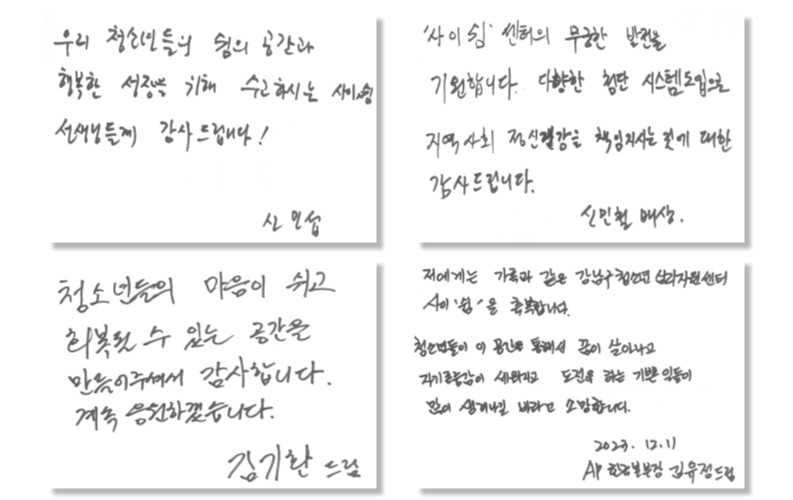 우리 청소년들의 쉼의 공간과
행복한 성장을 위해 수고하시는 사이쉼
선생님들께 감사드립니다!
신인섭
'사이쉼' 센터의 무궁한 발전을
기원합니다. 다양한 첨단 시스템도입으로
지역사회 정신건강을 책임지시는 것에 대한
감사드립니다.
신민철 배상.
청소년들의 마음이 쉬고
회복될 수 있는 공간을
만들어주셔서 감사합니다.
계속 응원하겠습니다.
김기환 드림
저에게는 가족과 같은 강남구청소년 심리지원센터
사이'쉼'을 축복합니다.
청소년들이 이 공간을 통해서 꿈이 살아나고
자기존중감이 세워지고 도전을 하는 기쁜 일들이
많이 생겨나길 바라고 소망합니다.
2023. 12. 11
AP 한국본부장 김유정드림